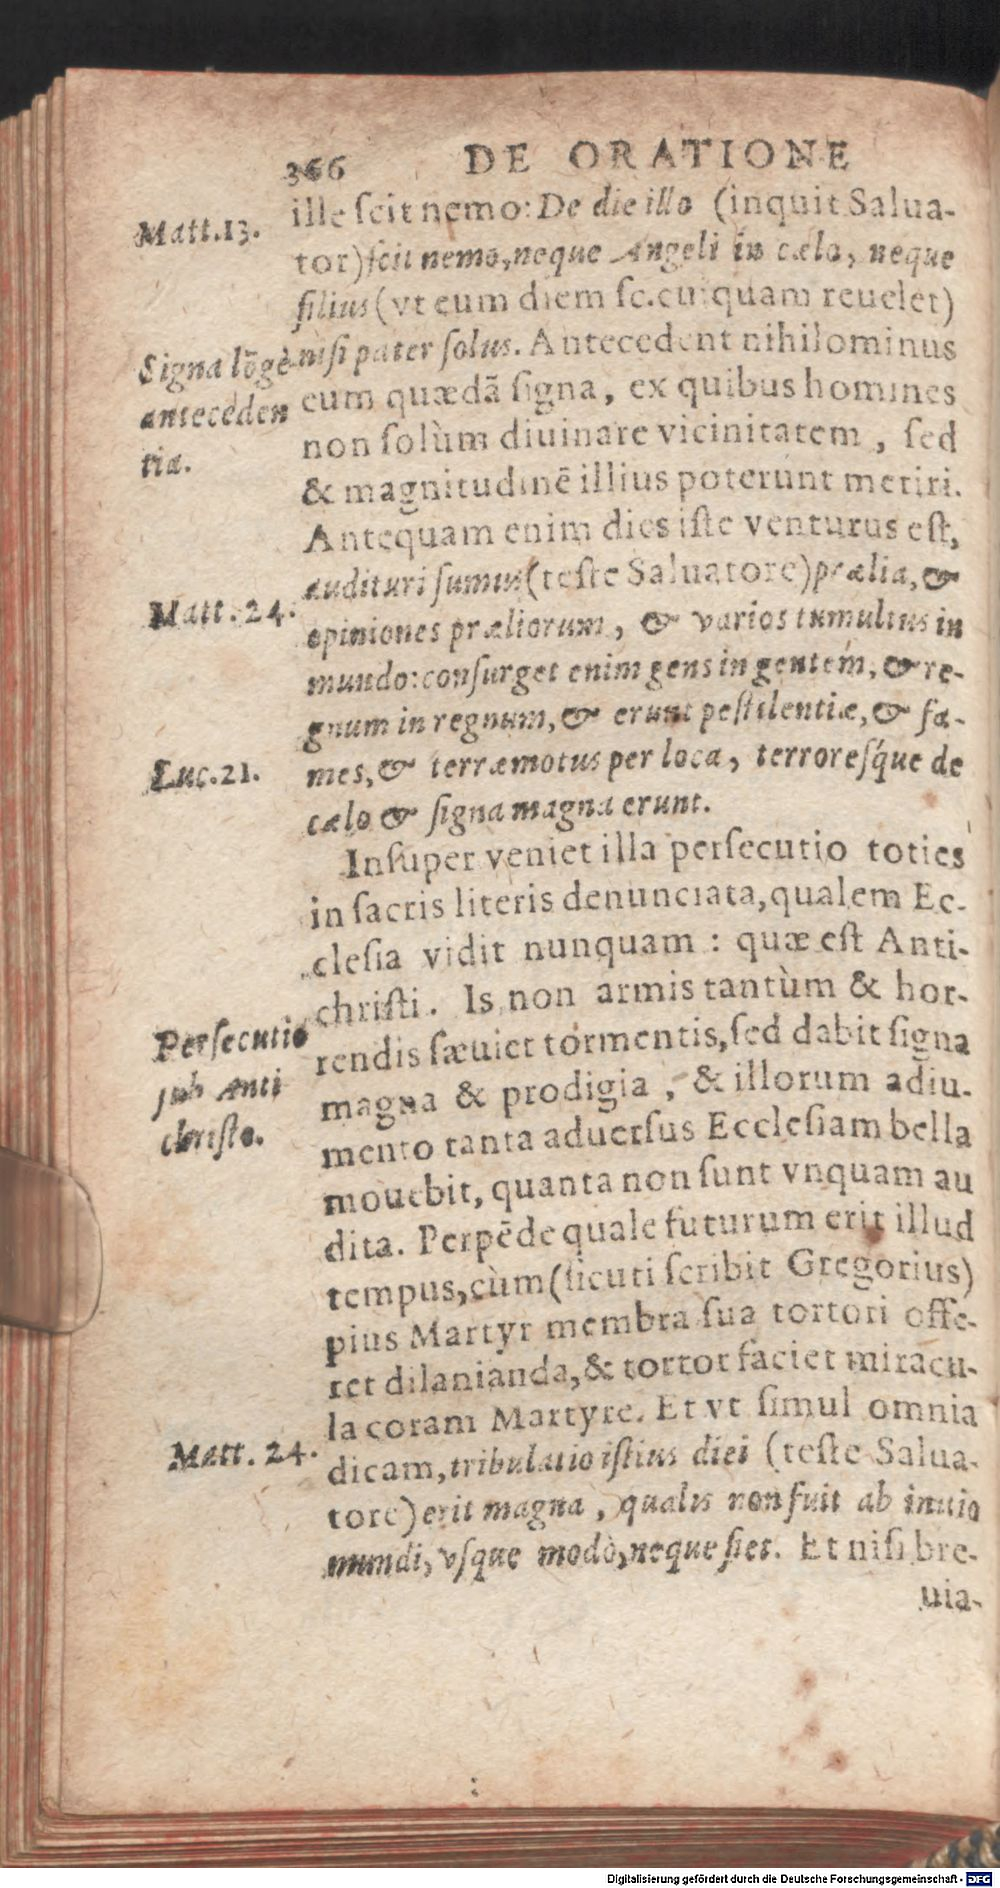 366 DE ORATIONE
ille ſcit nemo: De die illo (inquit Salua-
Matt.13.
tor) ſcit nemo, neque Angeli in cælo, neque
filius (vt eum diem ſc. cuiquam reuelet)
niſi pater ſolus. Antecedent nihilominus
Signa lõgè
anteceden
tia.
eum quædã ſigna, ex quibus homines
non ſolùm diuinare vicinitatem, ſed
& magnitudinẽ illius poterunt metiri.
Antequam enim dies iſte venturus eſt,
audituri ſumus (teſte Saluatore) prælia, &
Matt. 24.
opiniones præliorum, & varios tumultus in
mundo: conſurget enim gens in gentem, & re-
gnum in regnum, & erunt peſtilentiæ, & fa-
mes, & terræmotus per loca, terroreſq́ue de
Luc. 21.
cælo & ſigna magna erunt.
Inſuper veniet illa perſecutio toties
in ſacris literis denunciata, qualem Ec-
cleſia vidit nunquam: quæ eſt Anti-
chriſti. Is non armis tantùm & hor-
rendis ſæuiet tormentis, ſed dabit ſigna
Perſecutio
ſub Anti
chriſto.
magna & prodigia, & illorum adiu-
mento tanta aduerſus Eccleſiam bella
mouebit, quanta non ſunt vnquam au
dita. Perpẽde quale futurum erit illud
tempus, cùm (ſicuti ſcribit Gregorius)
pius Martyr membra ſua tortori offe-
ret dilanianda, & tortor faciet miracu-
la coram Martyre. Et vt ſimul omnia
dicam, tribulatio iſtius diei (teſte Salua-
Matt. 24.
tore) erit magna, qualis non fuit ab initio
mundi, vſque modò, neque fiet. Et niſi bre-
uia-
Digitalisierung gefördert durch die Deutsche Forschungsgemeinschaft - DFG